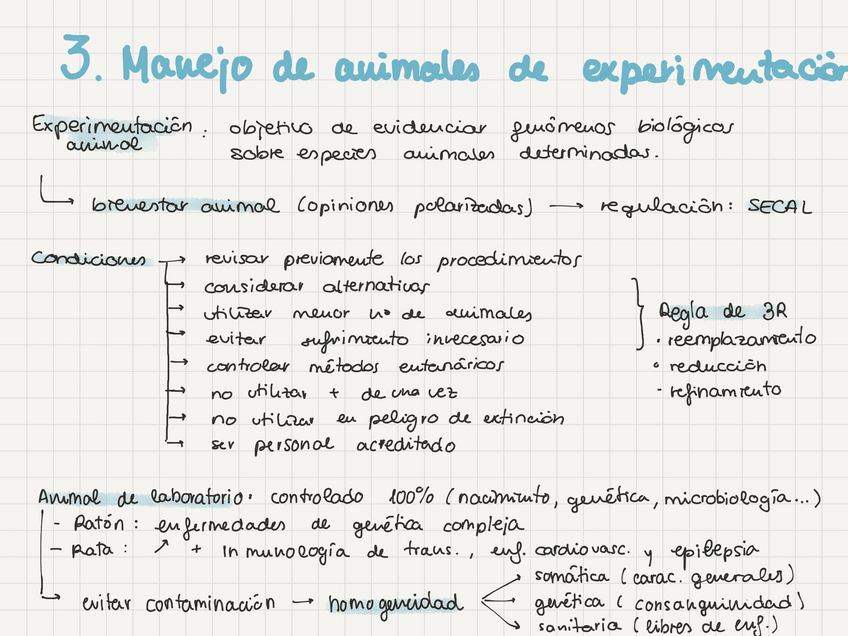 3. Manejo de animales de experimentación
Experimentación animal : objetivo de evidenciar fenómenos biológicos
sobre especies animales determinadas.
bienestar animal (opiniones polarizadas) → regulación: SECAL
Condiciones → revisar previamente los procedimientos
→ considerar alternativas
→ utilizar menor nº de animales
→ evitar sufrimiento innecesario
→ controlar métodos eutanáricos
→ no utilizar + de una vez
→ no utilizar en peligro de extinción
→ ser personal acreditado
Regla de 3R
· reemplazamiento
· reducción
- refinamiento
Animal de laboratorio: controlado 100% (nacimiento, genética, microbiología...)
- Ratón: enfermedades de genética compleja
- Rata: ↗ + inmunología de trans., enf. cardiovasc. y epilepsia
→ evitar contaminación → homogeneidad
somática (carac. generales)
genética (consanguinidad)
sanitaria (libres de enf.)